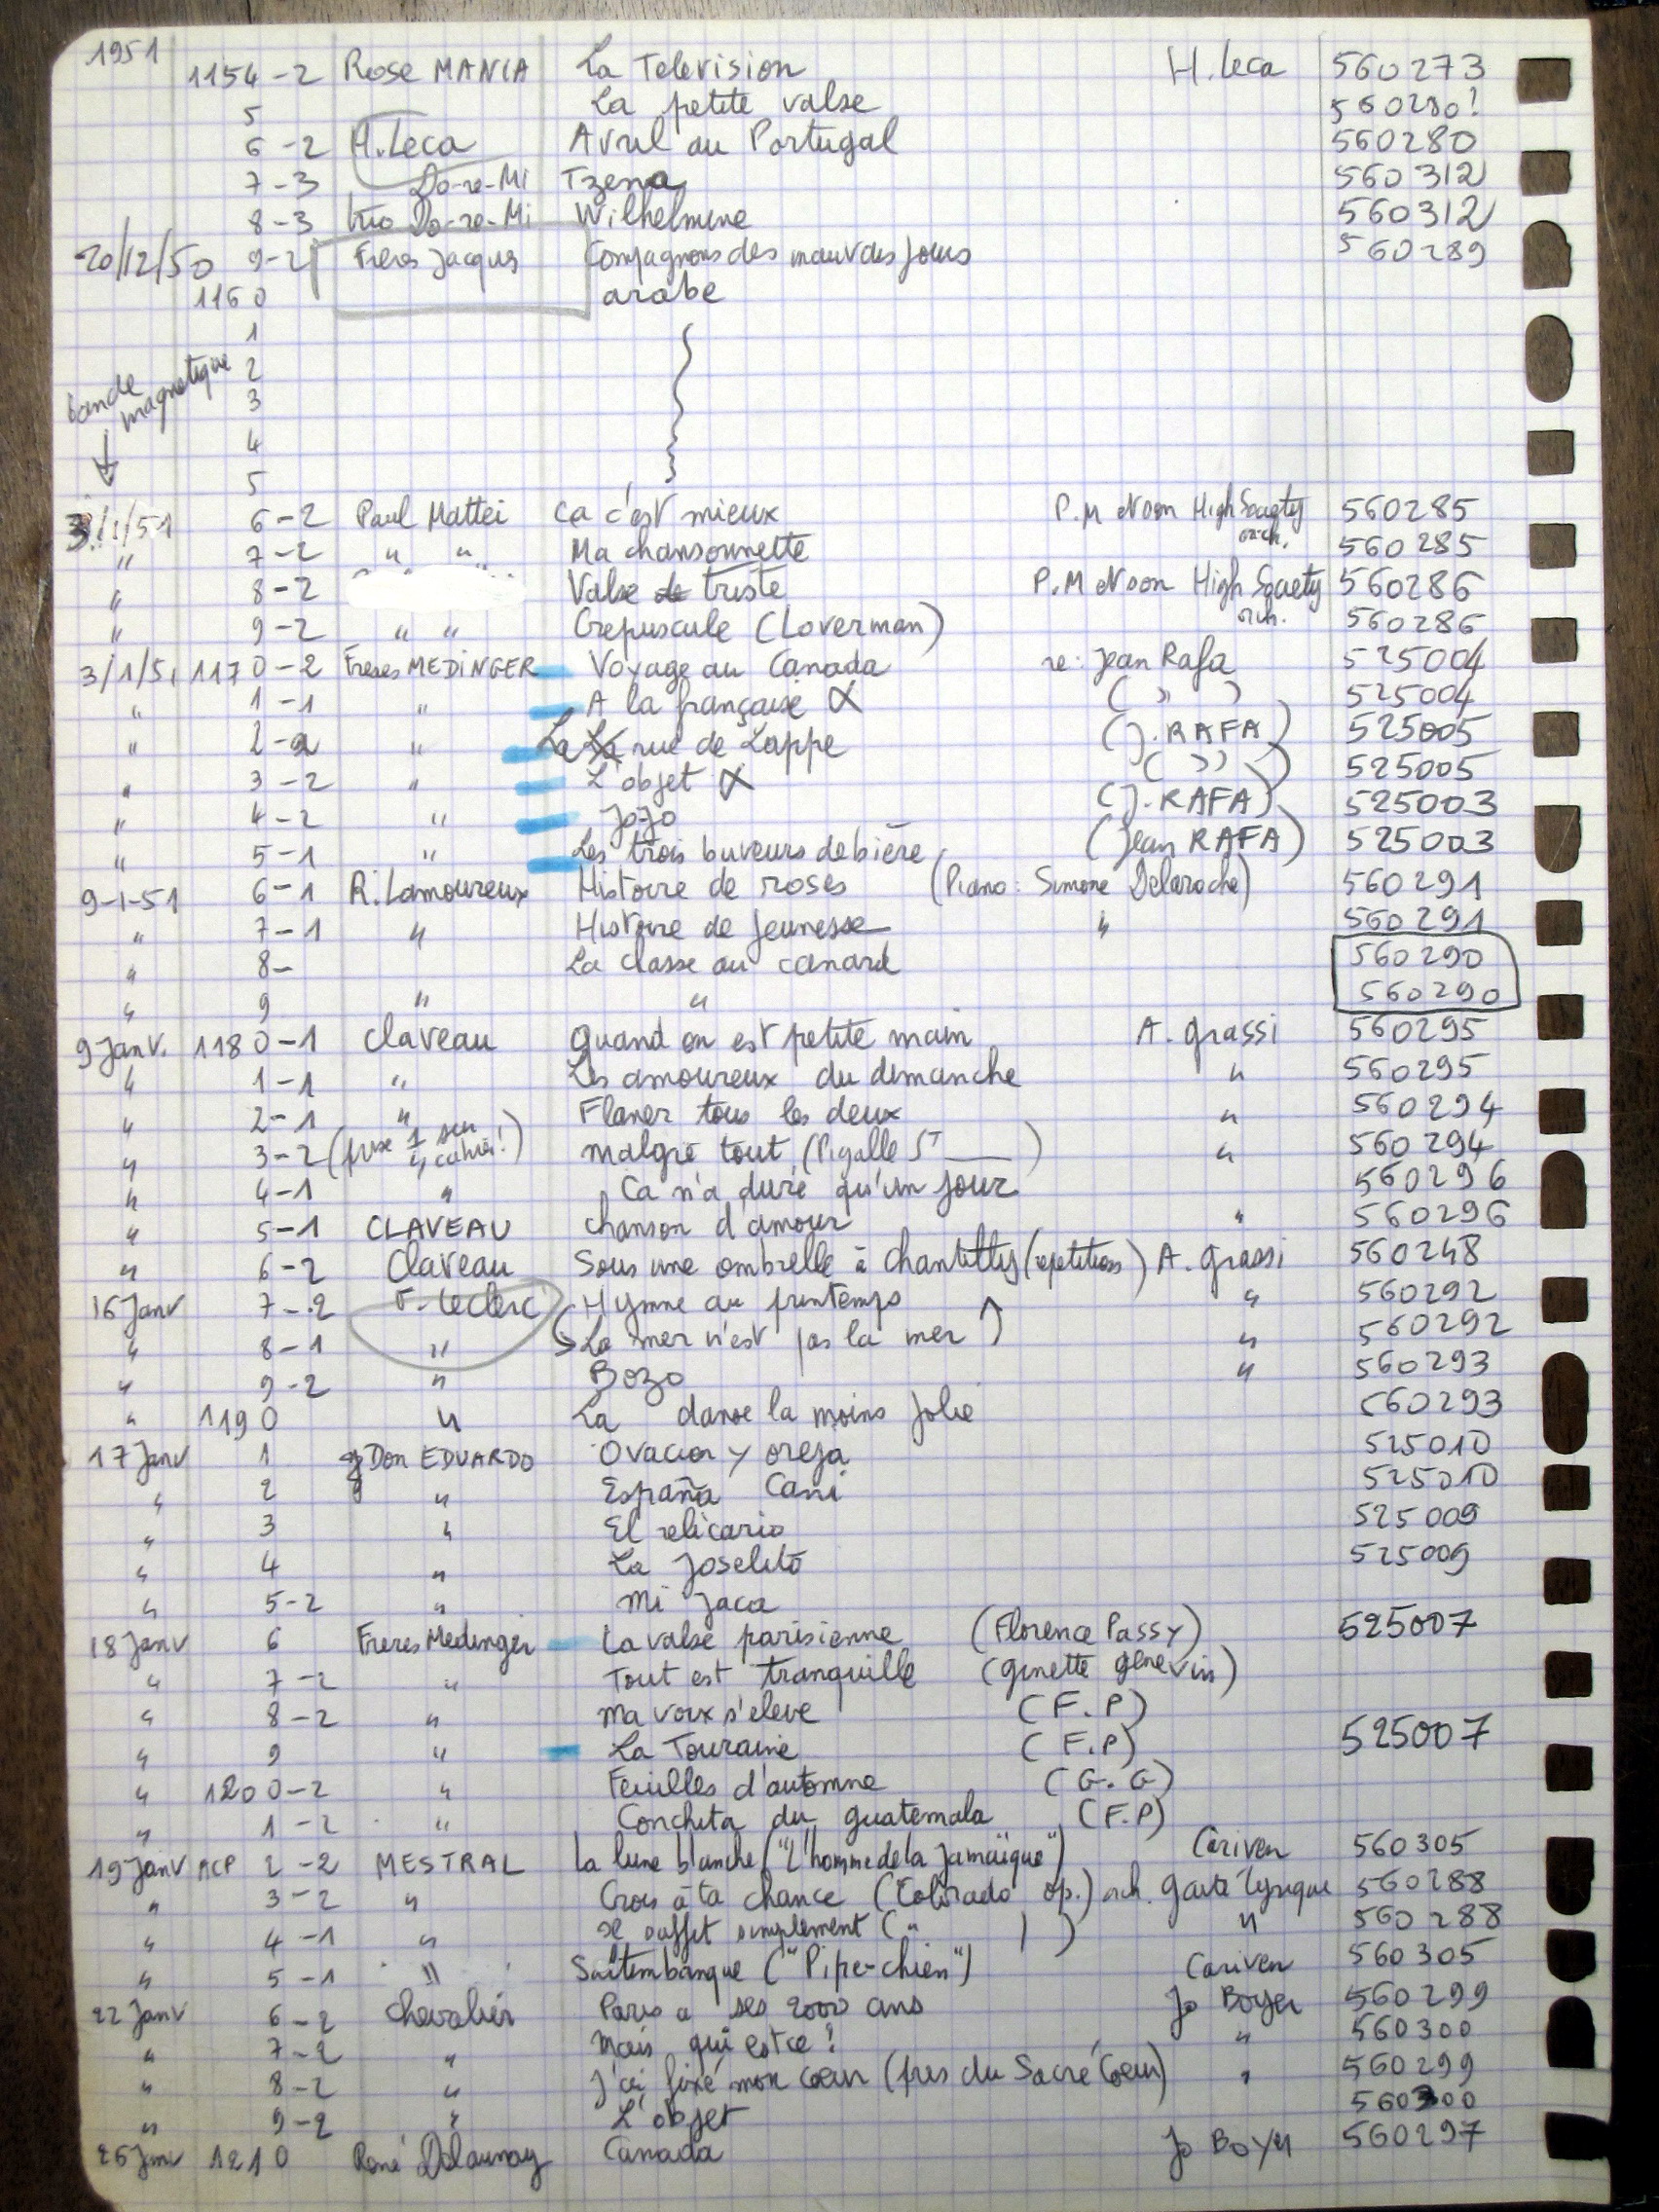 1951
1154-2 Rose MANIA La Television H. Leca 560273
5 La petite valse 560280?
6-2 H. Leca Avril au Portugal 560280
7-3 Do-re-Mi Tzena 560312
8-3 trio Do-re-Mi Wilhelmine 560312
20/12/50 9-2 Freres Jacques Compagnons des mauvais jours 560289
1160 arabe
1
bande magnetique 2
3
4
5
3/1/51 6-2 Paul Mattei Ca c'est mieux P.M et son High Society orch. 560285
" 7-2 " " Ma chansonnette 560285
" 8-2 Valse de triste P.M et son High Society orch. 560286
" 9-2 " " Crepuscule (Loverman) 560286
3/1/51 1170-2 Freres MEDINGER Voyage au Canada re: Jean Rafa 525004
" 1-1 " A la française ( " ) 525004
" 2-2 " La La rue de Lappe (J. RAFA) 525005
" 3-2 " L'objet ( " ) 525005
" 4-2 " Jojo (J. RAFA) 525003
" 5-1 " Les trois buveurs de bière (Jean RAFA) 525003
9-1-51 6-1 R. Lamoureux Histoire de roses (Piano: Simone Delaroche) 560291
" 7-1 " Histoire de jeunesse " 560291
" 8- La classe au canard 560290
" 9 " " 560290
9 Janv. 1180-1 Claveau Quand on est petite main A. Grassi 560295
" 1-1 " Les amoureux du dimanche " 560295
" 2-1 " Flaner tous les deux " 560294
" 3-2 (prise 1 sur cahier!) malgré tout (Pigalle St ) " 560294
" 4-1 " Ca n'a duré qu'un jour 560296
" 5-1 CLAVEAU chanson d'amour " 560296
" 6-2 Claveau Sous une ombrelle à Chantilly (repetitions) A. Grassi 560248
16 Janv 7-2 F. Leclerc Hymne au printemps " 560292
" 8-1 " La mer n'est pas la mer " 560292
" 9-2 " Bozo " 560293
" 1190 " La danse la moins jolie 560293
17 Janv 1 Don EDUARDO Ovacion y oreja 525010
" 2 " España Cani 525010
" 3 " El relicario 525009
" 4 " La Joselito 525009
" 5-2 " Mi Jaca
18 Janv 6 Freres Medinger La valse parisienne (Florence Passy) 525007
" 7-2 " Tout est tranquille (Ginette Genevin)
" 8-2 " ma voix s'eleve (F.P)
" 9 " La Touraine (F.P) 525007
" 1200-2 " Feuilles d'automne (G.G)
" 1-2 " Conchita du Guatemala (F.P)
19 Janv ACP 2-2 MESTRAL La lune blanche ("L'homme de la Jamaïque") Cariven 560305
" 3-2 " Crois à ta chance ("Colorado" op.) orch. Gaité Lyrique 560288
" 4-1 " Il suffit simplement ( " ) " 560288
" 5-1 " Saltembanque ("Pipe-chien") Cariven 560305
22 Janv 6-2 Chevalier Paris a ses 2000 ans Jo Boyer 560299
" 7-2 " Mais qui est ce? " 560300
" 8-2 " J'ai fixé mon coeur (pres du Sacré Coeur) " 560299
" 9-2 " L'objet 560300
26 Janv 1210 René Delaunay Canada Jo Boyer 560297